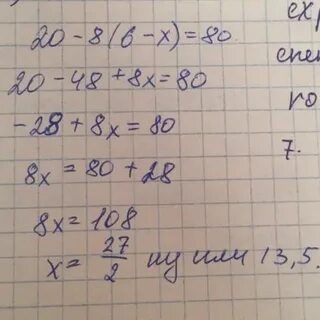 20 - 8(6 - x) = 80
20 - 48 + 8x = 80
- 28 + 8x = 80
8x = 80 + 28
8x = 108
x = 27/2 ну или 13,5.
7.